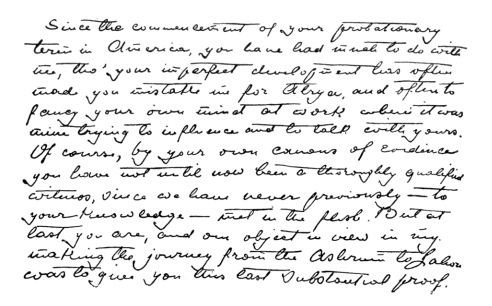 Since the commencement of your probationary
term in America, you have had much to do with
me, tho' your imperfect development has often
made you mistake me for Atrya, and often to
fancy your own mind at work when it was
mine trying to influence and to talk with yours.
Of course, by your own canons of evidence
you have not until now been a thoroughly qualified
witness, since we have never previously — to
your knowledge — met in the flesh. But at
last you are, and one object in view in my
making the journey from the Ashrum to Lahore
was to give you this last substantial proof.